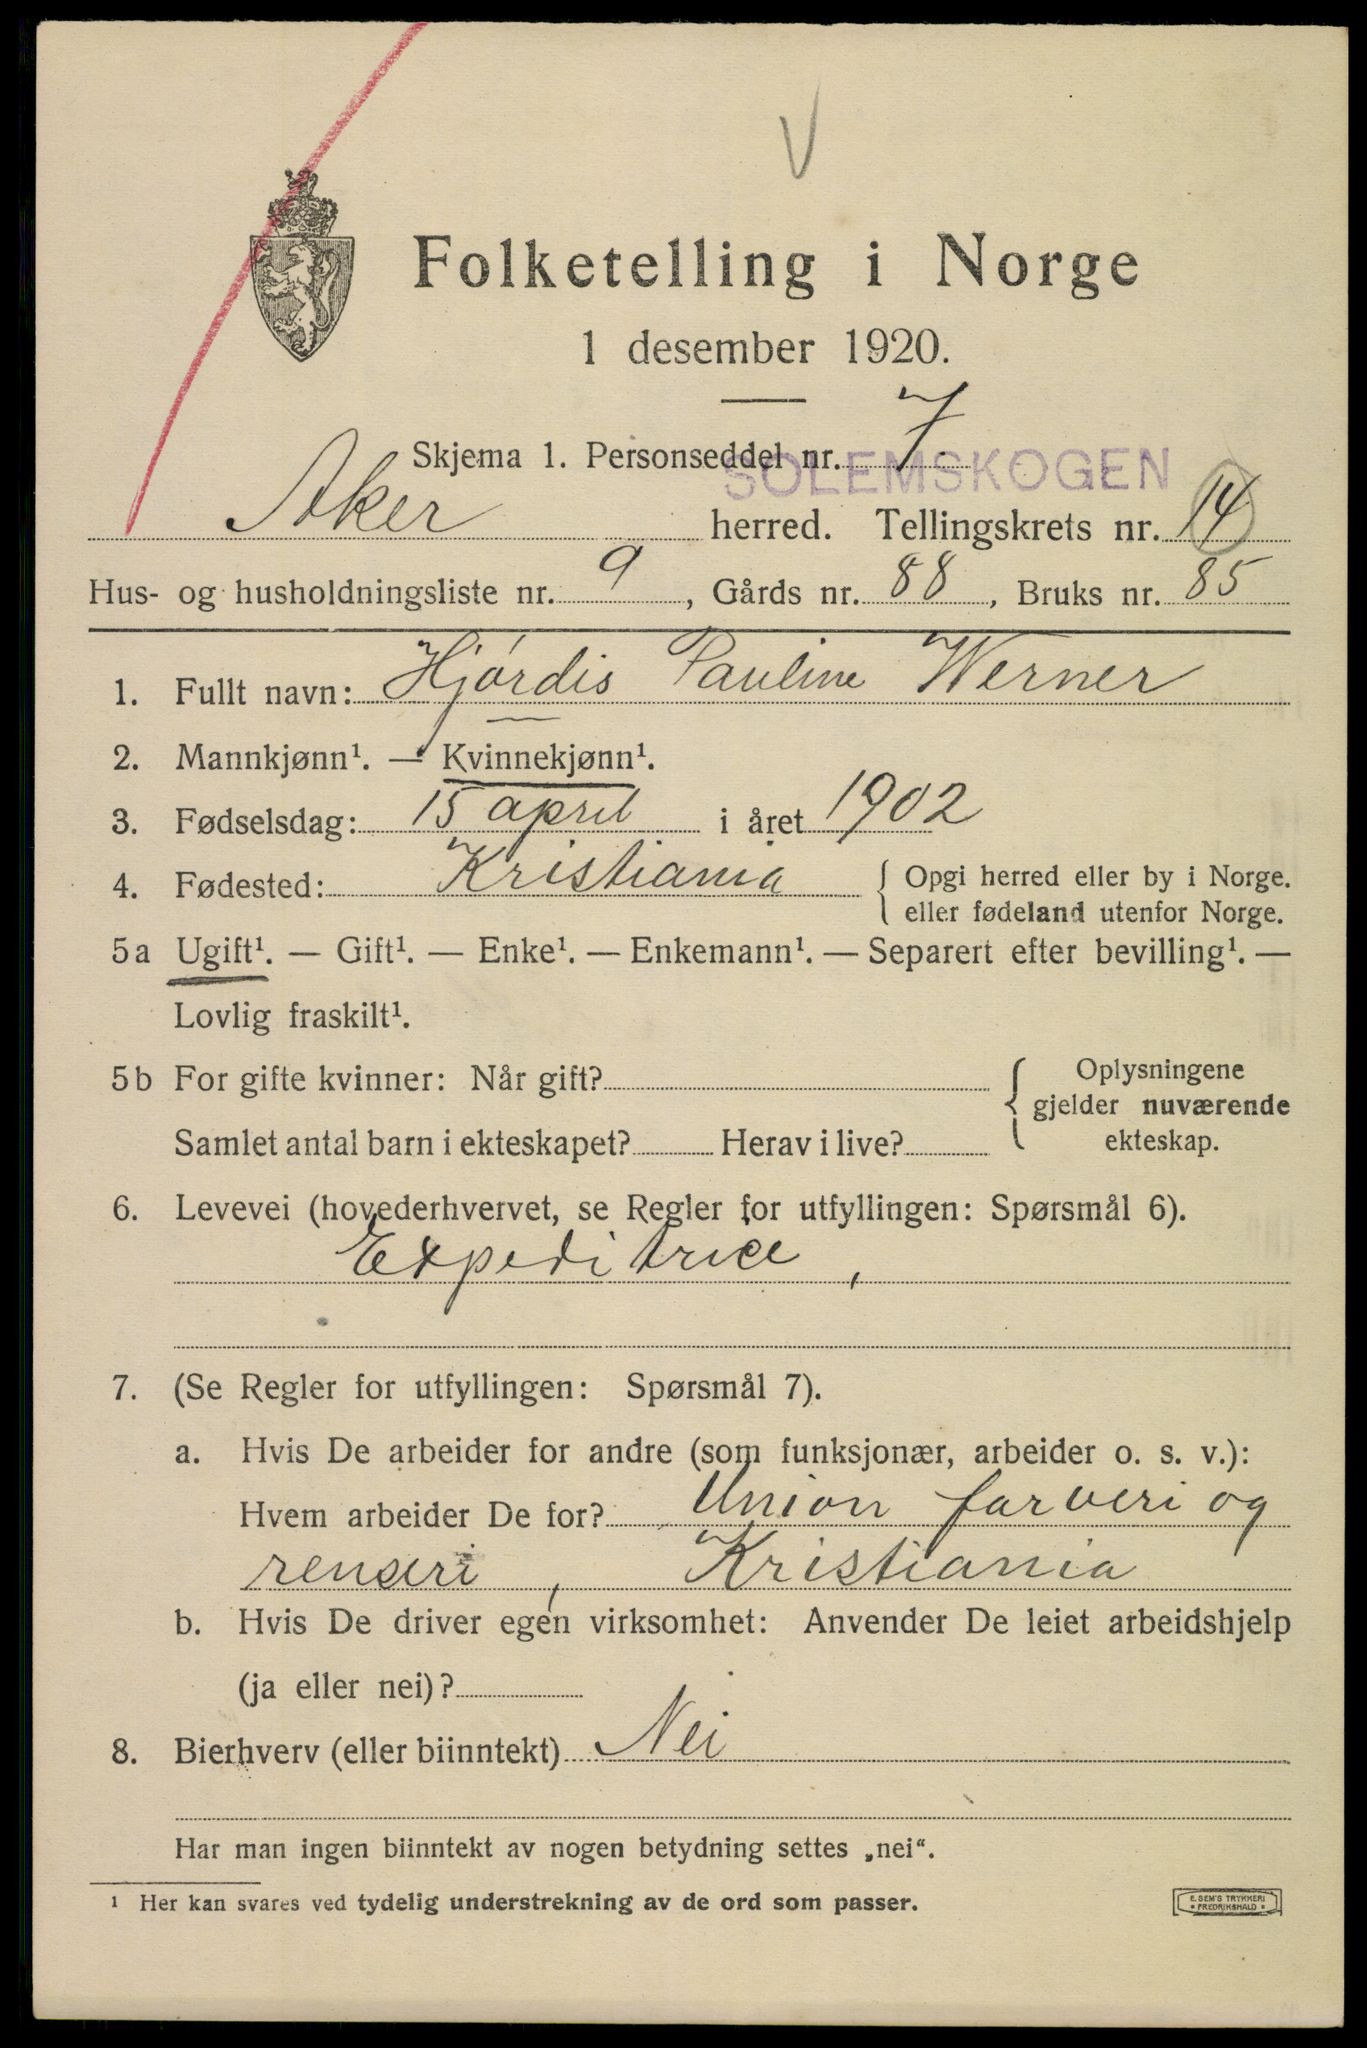 V
Folketelling i Norge
1 desember 1920.
Skjema 1. Personseddel nr. 7
SOLEMSKOGEN
Aker herred. Tellingskrets nr. 14
Hus- og husholdningsliste nr. 9, Gårds nr. 88, Bruks nr. 85
1. Fullt navn: Hjórdis Pauline Werner
2. Mannkjønn¹. — Kvinnekjønn¹.
3. Fødselsdag: 15 april i året 1902
4. Fødested: Kristiania { Opgi herred eller by i Norge.
eller fødeland utenfor Norge.
5a Ugift¹. — Gift¹. — Enke¹. — Enkemann¹. — Separert efter bevilling¹. —
Lovlig fraskilt¹.
5b For gifte kvinner: Når gift? { Oplysningene
gjelder nuværende
Samlet antal barn i ekteskapet? Herav i live? ekteskap.
6. Levevei (hovederhvervet, se Regler for utfyllingen: Spørsmål 6).
Expeditrice,
7. (Se Regler for utfyllingen: Spørsmål 7).
a. Hvis De arbeider for andre (som funksjonær, arbeider o. s. v.):
Hvem arbeider De for? Union farveri og
renseri, Kristiania
b. Hvis De driver egen virksomhet: Anvender De leiet arbeidshjelp
(ja eller nei)?
8. Bierhverv (eller biinntekt) Nei
Har man ingen biinntekt av nogen betydning settes „nei“.
¹ Her kan svares ved tydelig understrekning av de ord som passer.
E. SEM'S TRYKKERI
* FREDRIKSHALD *